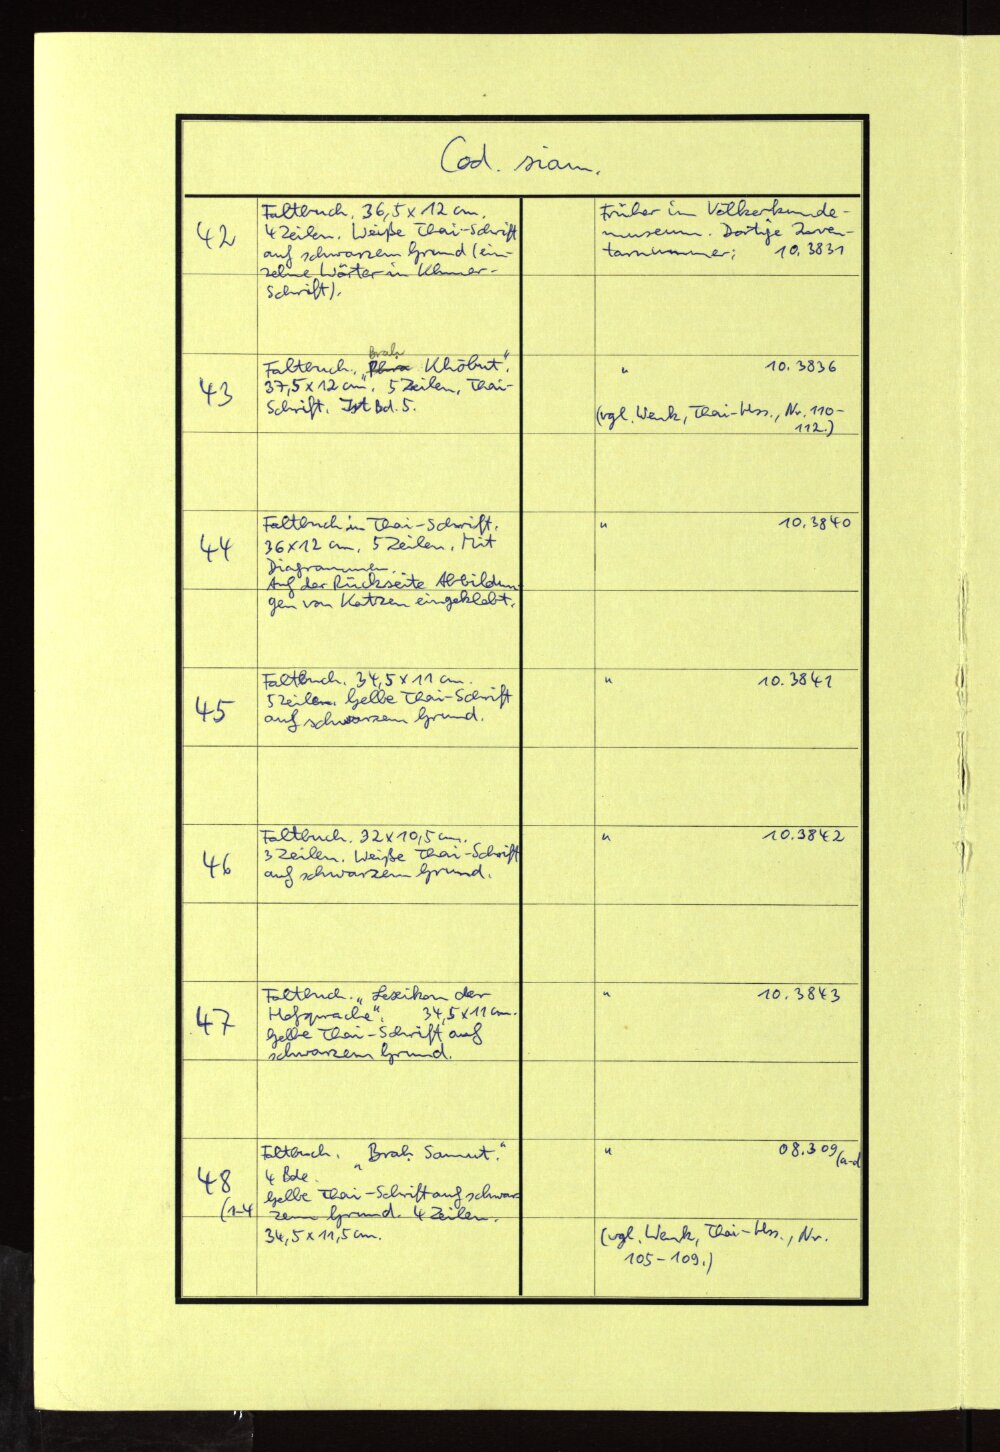 Cod. siam.
42
Faltbuch. 36,5 x 12 cm.
4 Zeilen. Weiße Thai-Schrift
auf schwarzem Grund (ein-
zelne Wörter in Khmer-
Schrift).
Früher im Völkerkunde-
museum. Dortige Inven-
tarnummer: 10.3831
43
Brah
Faltbuch. „Phra Khôbut".
37,5 x 12 cm. 5 Zeilen. Thai-
Schrift. Ist Bd. 5.
" 10.3836
(vgl. Wenk, Thai-Hss., Nr. 110-
112.)
44
Faltbuch in Thai-Schrift.
36 x 12 cm. 5 Zeilen. Mit
Diagrammen.
Auf der Rückseite Abbildun-
gen von Katzen eingeklebt.
" 10.3840
45
Faltbuch. 34,5 x 11 cm.
5 Zeilen. Gelbe Thai-Schrift
auf schwarzem Grund.
" 10.3841
46
Faltbuch. 32 x 10,5 cm.
3 Zeilen. Weiße Thai-Schrift
auf schwarzem Grund.
" 10.3842
47
Faltbuch. „Lexikon der
Hofsprache". 34,5 x 11 cm.
Gelbe Thai-Schrift auf
schwarzem Grund.
" 10.3843
48
(1-4
Faltbuch. „Brah Samut."
4 Bde.
Gelbe Thai-Schrift auf schwar-
zem Grund. 4 Zeilen.
34,5 x 11,5 cm.
" 08.309 (a-d
(vgl. Wenk, Thai-Hss., Nr.
105-109.)